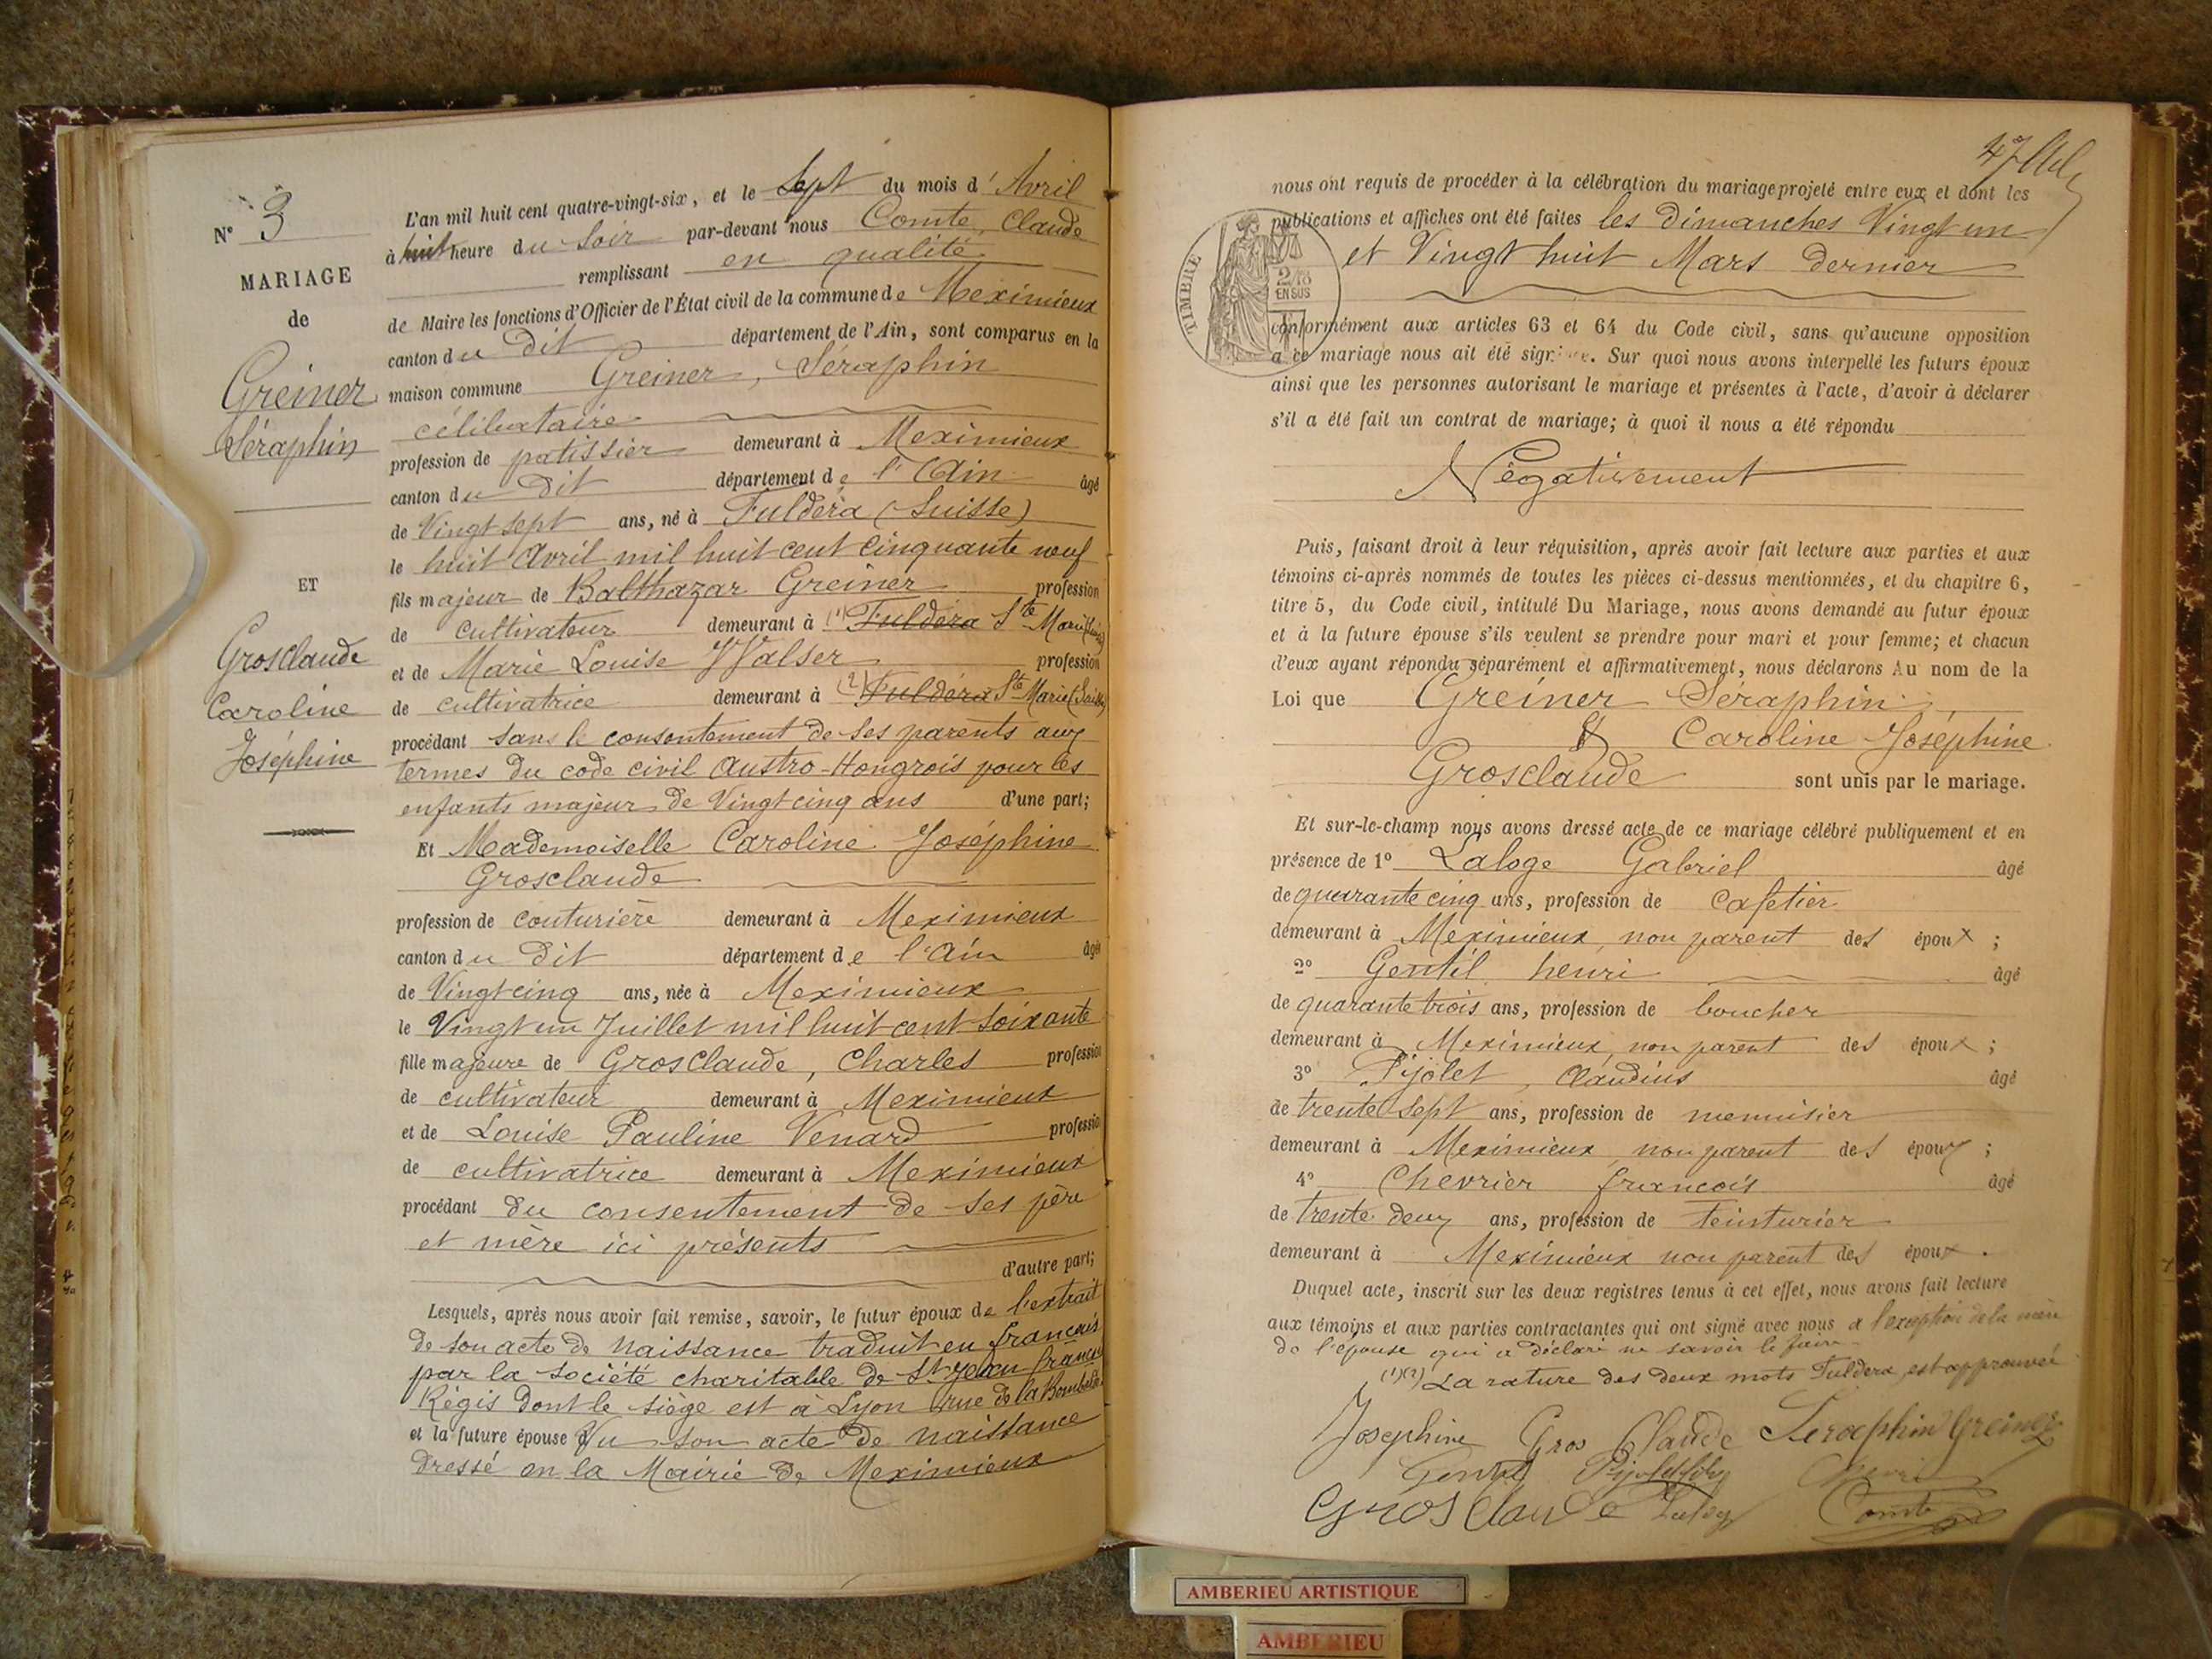 N° 3
MARIAGE
de
Greiner
Séraphin
ET
Grosclaude
Caroline
Joséphine
L'an mil huit cent quatre-vingt-six, et le Sept du mois d'Avril
à huit heure du Soir par-devant nous Comte, Claude
remplissant en qualité
de Maire les fonctions d'Officier de l'État civil de la commune de Meximieux
canton du dit département de l'Ain, sont comparus en la
maison commune Greiner, Séraphin
célibataire
profession de patissier demeurant à Meximieux
canton du dit département de l'Ain âgé
de Vingt sept ans, né à Fuldèra (Suisse)
le huit Avril mil huit cent cinquante neuf
fils majeur de Balthazar Greiner profession
de cultivateur demeurant à (1) Fuldèra Ste Marie (Suisse)
et de Marie Louise Walser profession
de cultivatrice demeurant à (2) Fuldèra Ste Marie (Suisse)
procédant sans le consentement de ses parents aux
termes du code civil Austro-Hongrois pour les
enfants majeur de Vingt cinq ans d'une part;
Et Mademoiselle Caroline Joséphine
Grosclaude
profession de couturière demeurant à Meximieux
canton du dit département de l'Ain âgée
de Vingt cinq ans, née à Meximieux
le Vingt un Juillet mil huit cent soixante
fille majeure de Grosclaude, Charles profession
de cultivateur demeurant à Meximieux
et de Louise Pauline Venard profession
de cultivatrice demeurant à Meximieux
procédant du consentement de ses père
et mère ici présents
d'autre part;
Lesquels, après nous avoir fait remise, savoir, le futur époux de l'extrait
de son acte de naissance traduit en français
par la société charitable de St Jean français
Régis dont le siège est à Lyon rue de la Bombarde
et la future épouse Vu son acte de naissance
dressé en la Mairie de Meximieux
nous ont requis de procéder à la célébration du mariage projeté entre eux et dont les
publications et affiches ont été faites les dimanches Vingt un
et Vingt huit Mars dernier
TIMBRE
2/10
EN SUS
conformément aux articles 63 et 64 du Code civil, sans qu'aucune opposition
a ce mariage nous ait été signifiée. Sur quoi nous avons interpellé les futurs époux
ainsi que les personnes autorisant le mariage et présentes à l'acte, d'avoir à déclarer
s'il a été fait un contrat de mariage; à quoi il nous a été répondu
Négativement
Puis, faisant droit à leur réquisition, après avoir fait lecture aux parties et aux
témoins ci-après nommés de toutes les pièces ci-dessus mentionnées, et du chapitre 6,
titre 5, du Code civil, intitulé Du Mariage, nous avons demandé au futur époux
et à la future épouse s'ils veulent se prendre pour mari et pour femme; et chacun
d'eux ayant répondu séparément et affirmativement, nous déclarons Au nom de la
Loi que Greiner Séraphin
& Caroline Joséphine
Grosclaude sont unis par le mariage.
Et sur-le-champ nous avons dressé acte de ce mariage célébré publiquement et en
présence de 1° Laloge Gabriel âgé
de quarante cinq ans, profession de cafetier
demeurant à Meximieux, non parent des époux ;
2° Gentil henri âgé
de quarante trois ans, profession de boucher
demeurant à Meximieux, non parent des époux ;
3° Pijolet, Claudius âgé
de trente sept ans, profession de menuisier
demeurant à Meximieux non parent des époux ;
4° Chevrier françois âgé
de trente deux ans, profession de teinturier
demeurant à Meximieux non parent des époux.
Duquel acte, inscrit sur les deux registres tenus à cet effet, nous avons fait lecture
aux témoins et aux parties contractantes qui ont signé avec nous à l'exception de la mère
de l'épouse qui a déclaré ne savoir le faire
(1)(2) La rature des deux mots Fuldera est approuvée
Josephine Gros Claude Seraphin Greiner
Gentil
Gros Claude Comte
AMBERIEU ARTISTIQUE
AMBERIEU